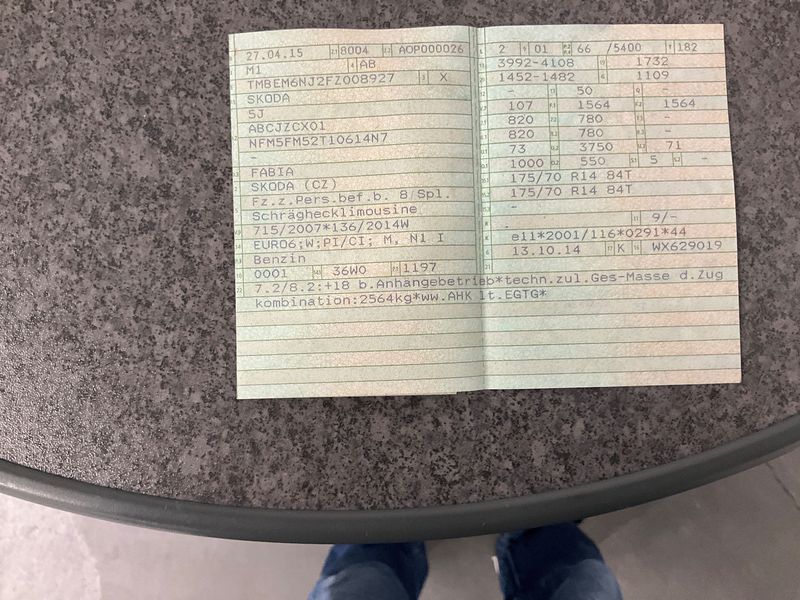 27.04.15 8004 AOP000026
M1 AB
TMBEM6NJ2FZ008927 X
SKODA
5J
ABCJZCX01
NFM5FM52T10614N7
-
FABIA
SKODA (CZ)
Fz.z.Pers.bef.b. 8 Spl.
Schräghecklimousine
715/2007*136/2014W
EURO6;W;PI/CI; M, N1 I
Benzin
0001 36W0 1197
7.2/8.2:+18 b.Anhängebetrieb*techn.zul.Ges-Masse d.Zug
kombination:2564kg*ww.AHK lt.EGTG*
2 01 66 /5400 182
3992-4108 1732
1452-1482 1109
- 50 -
107 1564 1564
820 780 -
820 780 -
73 3750 71
1000 550 5 -
175/70 R14 84T
175/70 R14 84T
-
9/-
e11*2001/116*0291*44
13.10.14 K WX629019